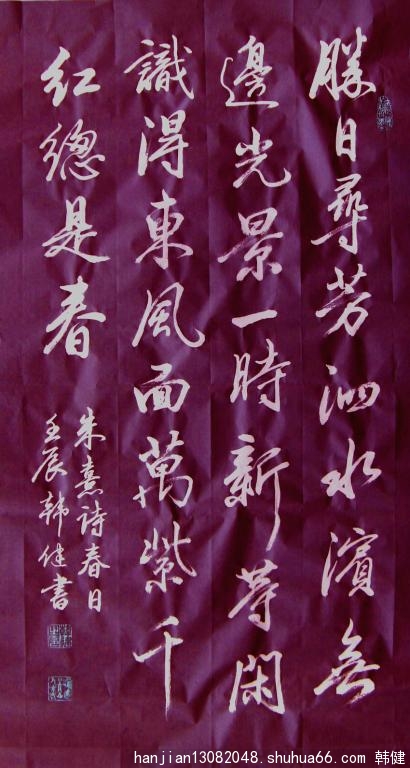 勝日尋芳泗水濱無
邊光景一時新等閑
識得東風面萬紫千
红總是春
朱熹诗春日
壬辰韩健書
hanjian13082048.shuhua66.com 韩健